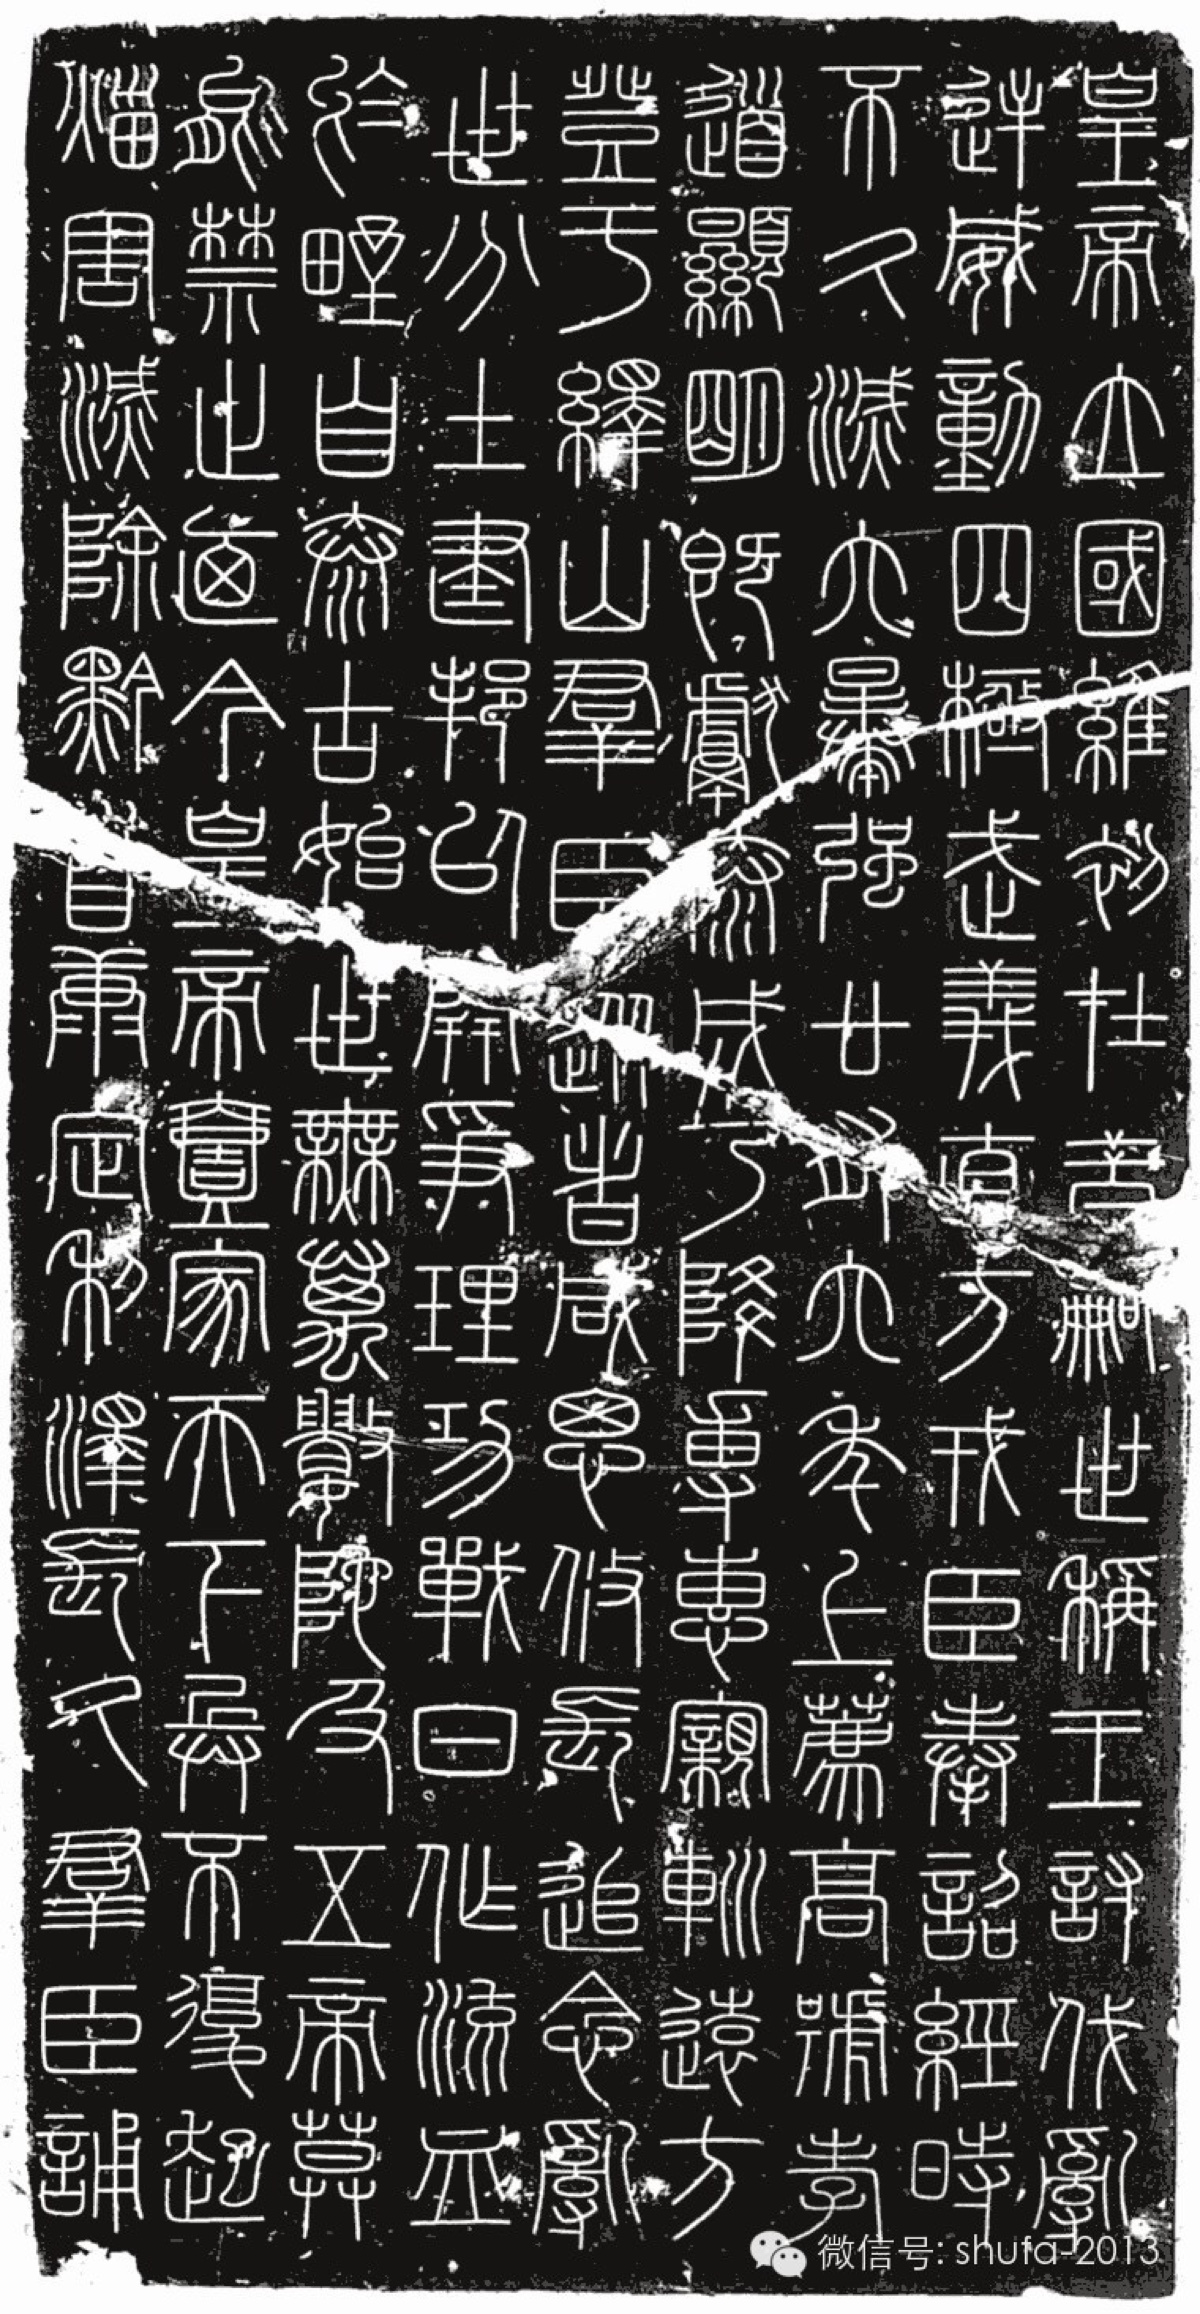 皇帝立國維初在昔嗣世稱王討伐亂
逆威動四極武義直方戎臣奉詔經時
不久滅六暴强廿有六年上薦高號孝
道顯明既獻泰成乃降專惠親巡遠方
登于繹山羣臣從者咸思攸長追念亂
世分土建邦以開爭理功戰日作流血
於野自泰古始世無萬數陀及五帝莫
能禁止廼今皇帝壹家天下兵不復起
災害滅除黔首康定利澤長久羣臣誦
微信号: shufa-2013